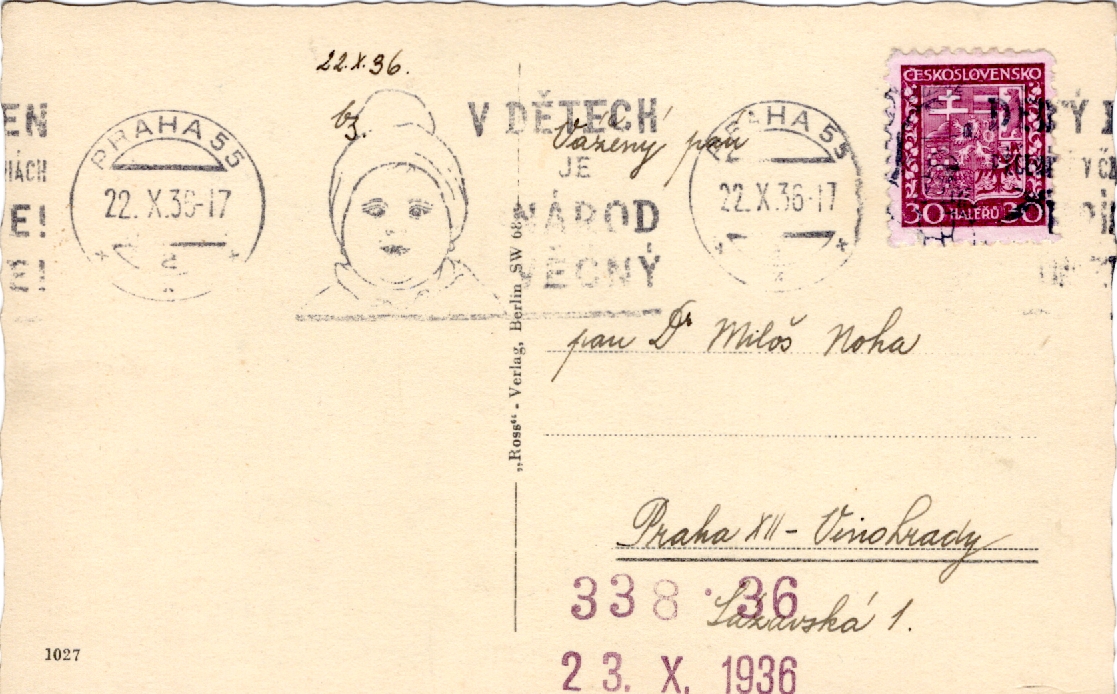 22.X.36.
V DĚTECH
JE
NÁROD
VĚČNÝ
EN
E!
E!
PRAHA 55
22. X. 36-17
PRAHA 55
22. X. 36-17
ČESKOSLOVENSKO
30 HALÉŘŮ 30
Vážený pan
pan Dr Miloš Noha
Praha XII - Vinohrady
Sázavská 1.
338 · 36
23. X. 1936
„Ross“ - Verlag, Berlin SW 68
1027